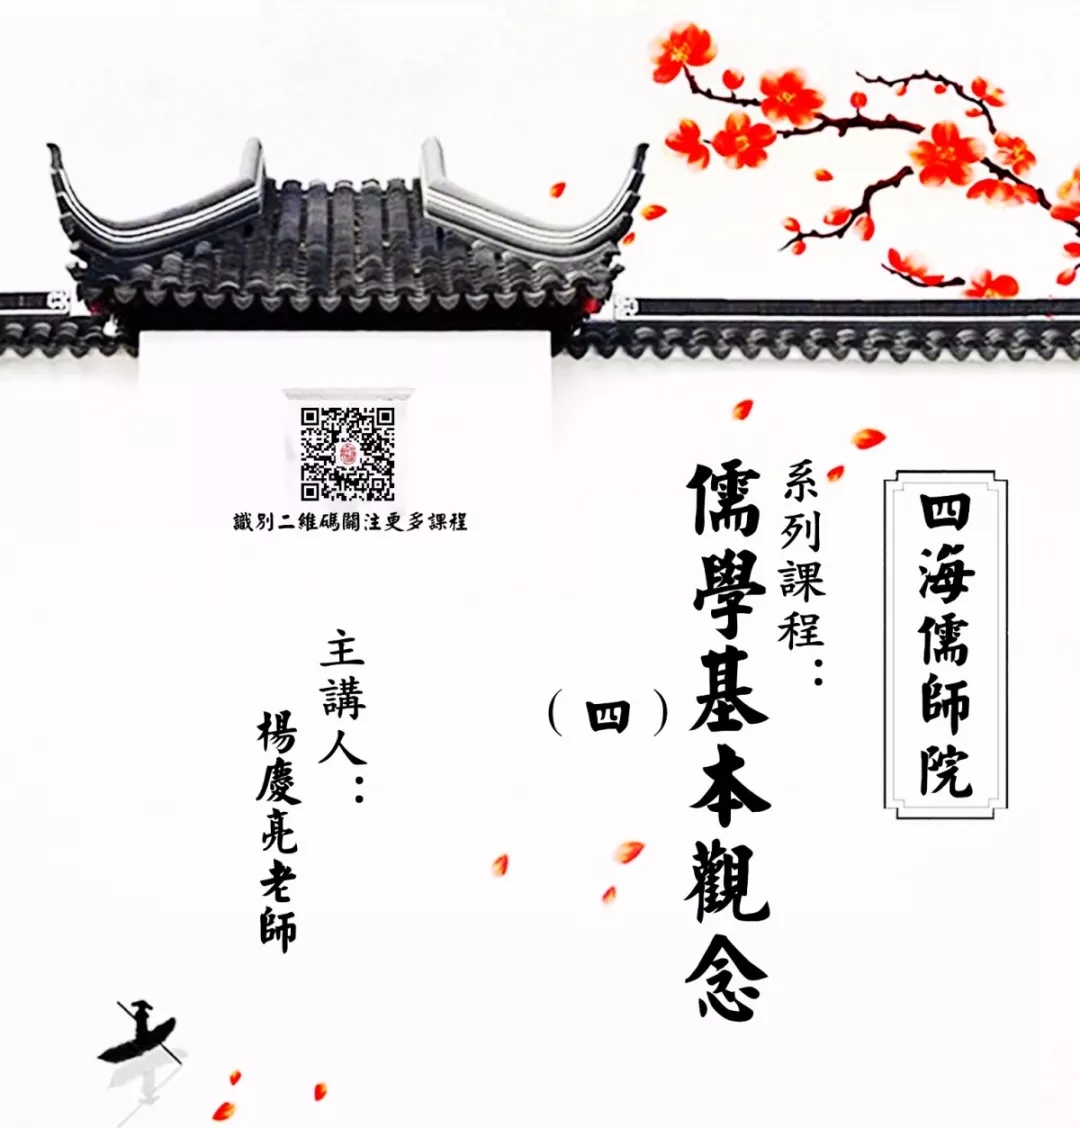 四海儒師院
系列課程：
儒學基本觀念
（四）
主講人：
楊慶亮老師
識別二維碼關注更多課程